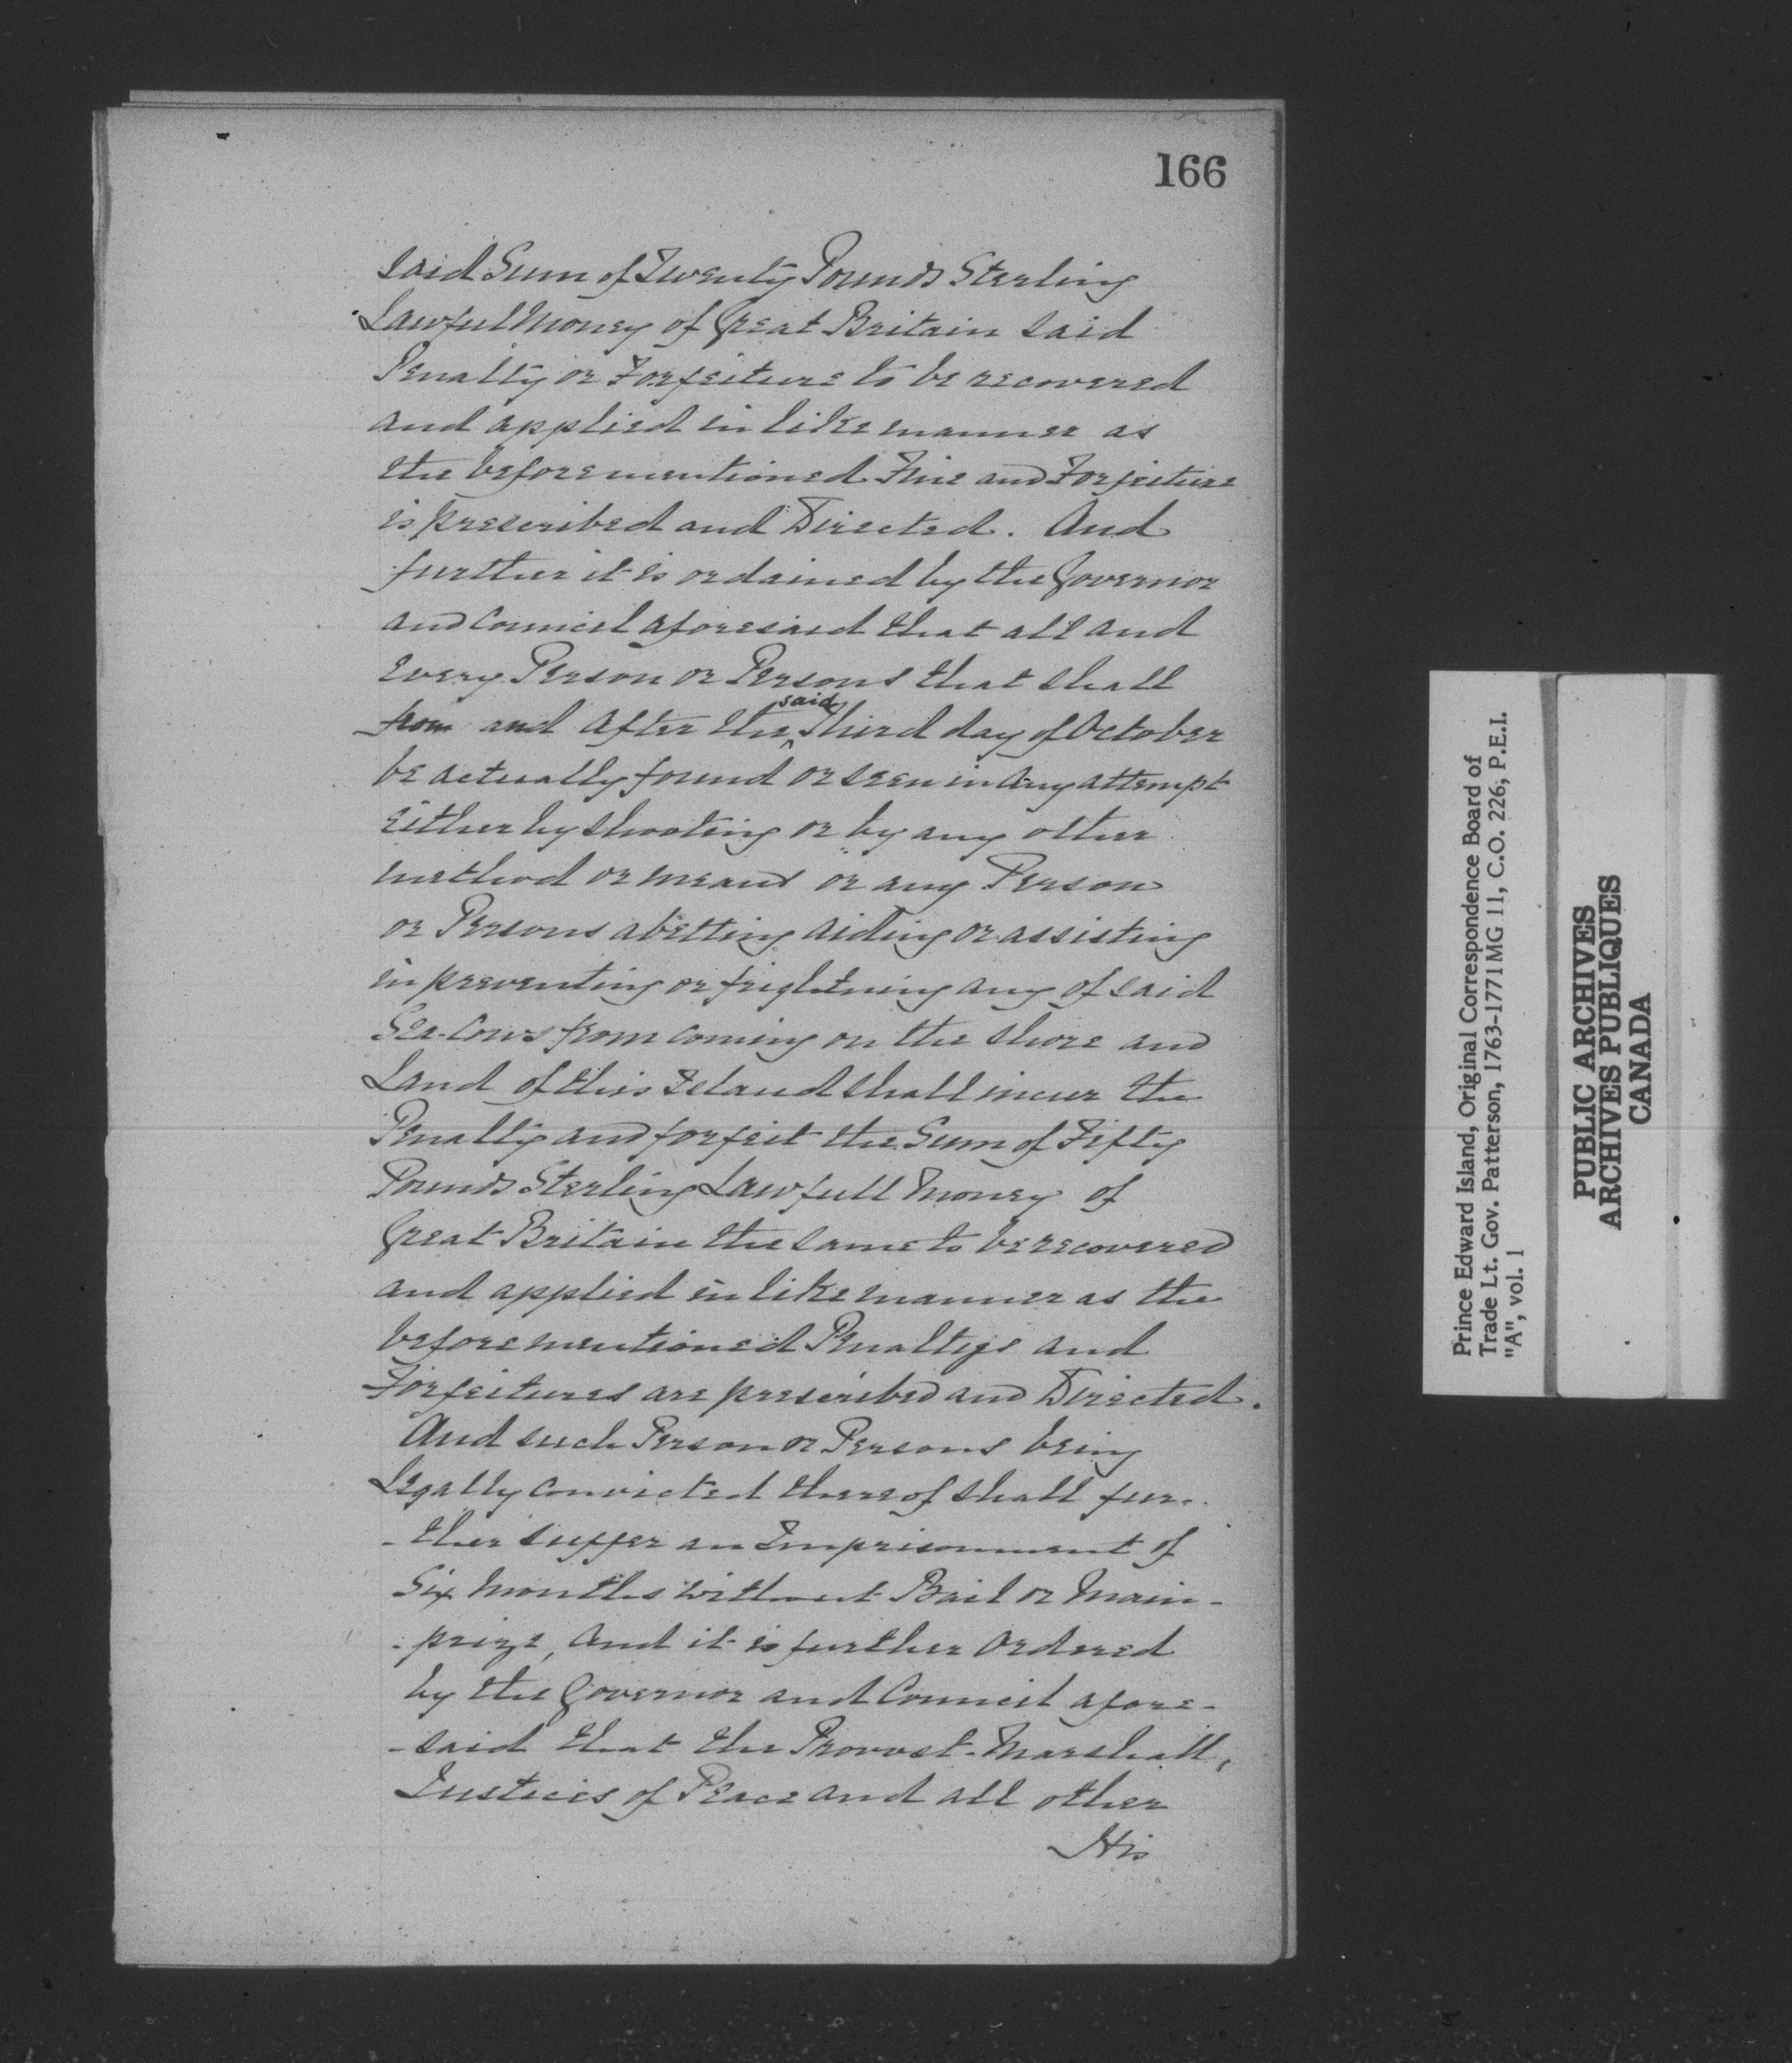 166
said Sum of Twenty Pounds Sterling
Lawful Money of Great Britain said
Penalty or Forfeiture to be recovered
and applied in like manner as
the beforementioned Fine and Forfeiture
is prescribed and Directed. And
further it is ordained by the Governor
and Council aforesaid that all and
Every Person or Persons that shall
from and after the said Third day of October
be actually found or seen in any attempt
Either by shooting or by any other
method or means or any Person
or Persons abetting aiding or assisting
in preventing or frightning any of said
Sea-Cows from coming on the Shore and
Land of this Island shall incur the
Penalty and forfeit the Sum of Fifty
Pounds Sterling Lawfull Money of
Great Britain the same to be recovered
and applied in like manner as the
beforementioned Penaltys and
Forfeitures are prescribed and Directed.
And such Person or Persons being
Legally convicted thereof shall fur-
-ther suffer an Imprisonment of
Six Months without Bail or Main-
-prize, And it is further Ordered
by the Governor and Council afore-
-said that the Provost-Marshall,
Justices of Peace and all other
His
Prince Edward Island, Original Correspondence Board of
Trade Lt. Gov. Patterson, 1763-1771 MG 11, C.O. 226, P.E.I.
"A", vol. 1
PUBLIC ARCHIVES
ARCHIVES PUBLIQUES
CANADA